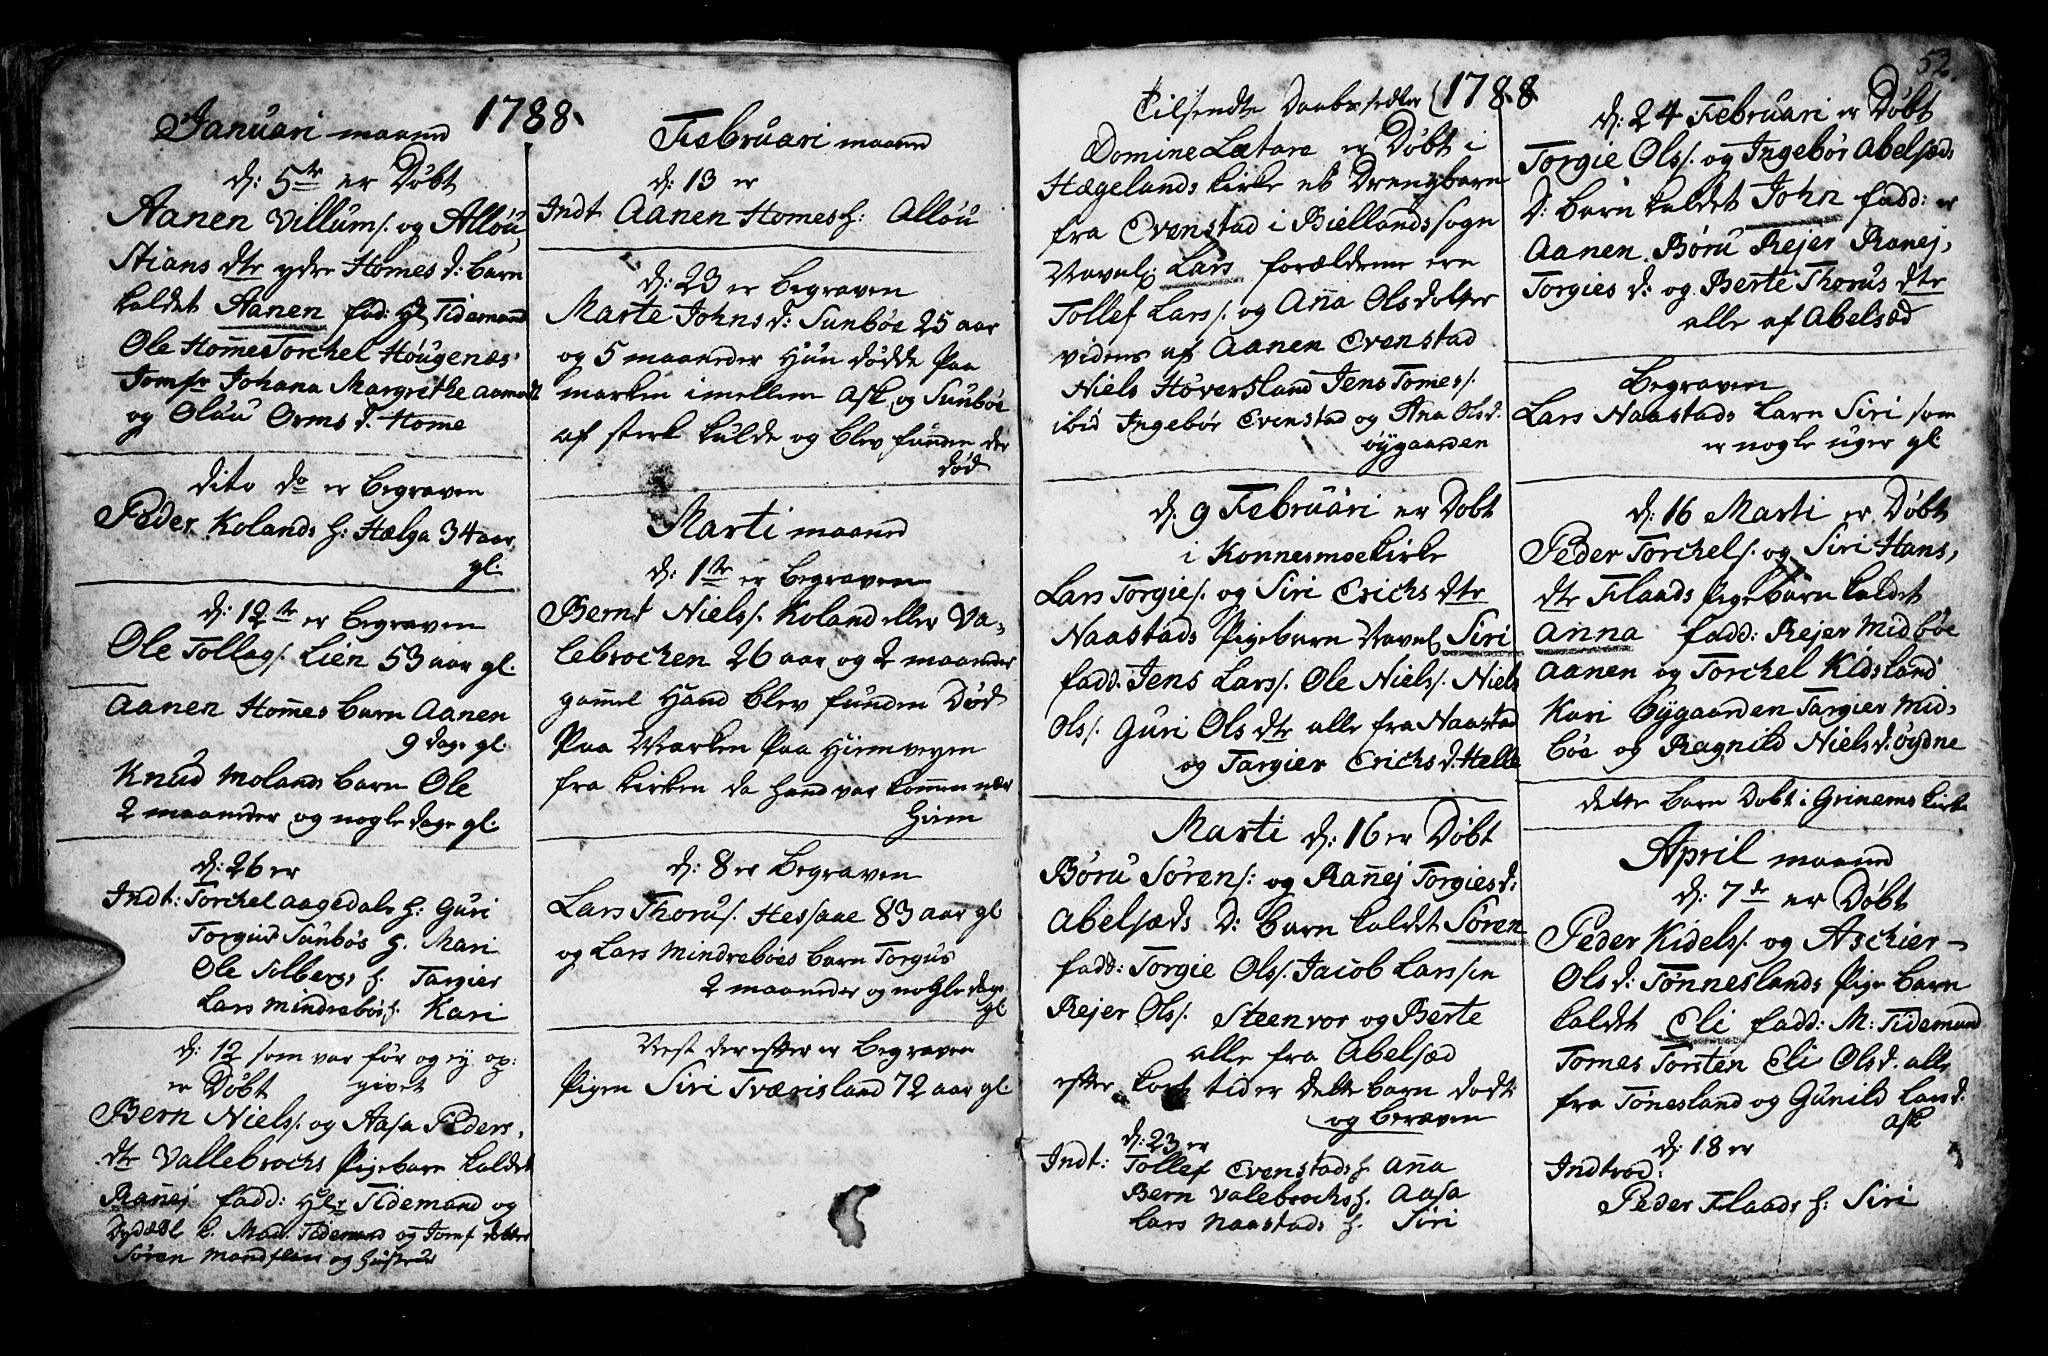 1788.
Januari maaned
d: 5te er Døbt
Aanen Villums: og Alløu
Stians dtr ydre Homes d: barn
kaldet Aanen fad: Hl Tidemand
Ole Homes Torchel Høugenæs
Jomfr Johana Margrethe Aamodt
og Oluu Orms d. Home
dito do er begraven
Peder Kolands h: Hælga 34 aar
gl:
d: 12te er begraven
Ole Tollags: Lien 53 aar gl.
Aanen Homes barn Aanen
9 dage gl.
Knud Molands barn Ole
2 maaneder og nogle dage gl.
d: 26 er
Indt: Torchel Aagedals h: Guri
Torgius Sunbøs h. Mari
Ole Solbergs h. Targier
Lars Mindrebøs h. Kari
d: 12 som var før og ey op:
er Døbt givet
Bern Niels: og Aasa Peders,
dtr Vallebrochs Pigebarn kaldet
Ranej fadd: Hlr Tidemand og
k. Mad. Tidemand og Jomf
Søren Mandflaae og Hustrue
Februari maaned
d: 13 er
Indt Aanen Homes h: Alløu
d: 23 er begraven
Marte Johns d: Sunbøe 25 aar
og 5 maaneder Hun døde Paa
marken imellem Ask og Sunbøe
af sterk kulde og blev funden der
død
Marti maaned
d: 1te er begraven
Bernt Niels: Koland eller Va,
lebrochen 26 aar og 2 maaneder
gamel Hand blev funden Død
Paa Marken Paa Hiemveyen
fra kirken da hand var kommen nær
hiem
d: 8 er begraven
Lars Thorus: Hessaae 83 aar gl
og Lars Mindrebøes barn Torgus
2 maaneder og nogle dage
gl
Nest der efter er begraven
Pigen Siri Tværisland 72 aar gl.
52.
Tilsendte Daabsedler (1788
Domine Lætare er Døbt i
Hægelands kirke et Drengbarn
fra Evenstad i Biellands sogn
Navnl: Lars forældrene ere
Tollef Lars: og Ana Olsdotter
videns af Aanen Evenstad
Niels Høversland Jens Tomes:
ibid Ingebør Evenstad og Ana Olsd.
øygaarden
d. 9 Februari er Dobt
i Konnesmoe kirke
Lars Torgies: og Siri Erichs dtr
Naastads Pigebarn Navnl Siri
fadd: Jens Lars: Ole Niels: Niels
Ols: Guri Ols dtr alle fra Naastad
og Targier Erichs d. Helle
Marti d: 16 er Døbt
Børu Sørens: og Ranej Torgiesd:
Abelsæds D: barn kaldet Søren
fadd: Torgie Ols: Jacob Larssen
Rejer Ols: Steenvor og Berte
alle fra Abelsæd
efter kort tid er dette barn dødt
og beraven
d: 23 er
Indt: Tollef Evenstads h. Ana
Bern Valebrochs h. Aasa
Lars Naastads h. Siri
d: 24 Februari er Døbt
Torgie Ols: og Ingebør Abelsæds
D: barn kaldet John fadd: er
Aanen. Børu Rejer Ranej,
Torgies d: og Berte Thorus dtr
alle af Abelsæd
begraven
Lars Naastads barn Siri som
er nogle uger gl.
d: 16 Marti er Døbt
Peder Torchels: og Siri Hans,
dtr Flaads Pigebarn kaldet
Anna fadd: Rejer Midbøe
Aanen og Torchel Kidsland
Kari Øygaarden Targier Mid,
bøe og Ragnild Nielsd. øydne
dette barn Døbt i Grinems kirke
April maaned
d: 7de er Døbt
Peder Kidels: og Aschier-
Olsd: Tønneslands Pige barn
kaldet Eli fadd: M: Tidemand
Tomes Torsten Eli Olsd. alle
fra Tønesland og Gunild Lars d.
ask
d: 18 er
Indtrod:
Peder Flaads h: Siri